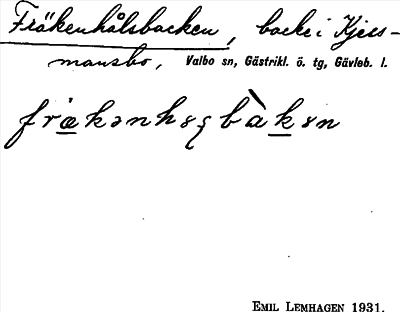 Fräkenhålsbacken, backe i Kjers-
mansbo, Valbo sn, Gästrikl. ö. tg, Gävleb. l.
EMIL LEMHAGEN 1931.